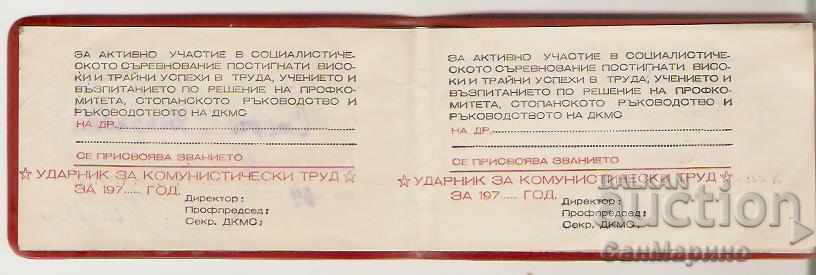 ЗА АКТИВНО УЧАСТИЕ В СОЦИАЛИСТИЧЕ-
СКОТО СЪРЕВНОВАНИЕ ПОСТИГНАТИ ВИСО-
КИ И ТРАЙНИ УСПЕХИ В ТРУДА, УЧЕНИЕТО И
ВЪЗПИТАНИЕТО ПО РЕШЕНИЕ НА ПРОФКО-
МИТЕТА, СТОПАНСКОТО РЪКОВОДСТВО И
РЪКОВОДСТВОТО НА ДКМС
НА ДР.
СЕ ПРИСВОЯВА ЗВАНИЕТО
☆ УДАРНИК ЗА КОМУНИСТИЧЕСКИ ТРУД ☆
ЗА 197..... ГОД.
Директор:
Профпредсед:
Секр. ДКМС:
ЗА АКТИВНО УЧАСТИЕ В СОЦИАЛИСТИЧЕ-
СКОТО СЪРЕВНОВАНИЕ ПОСТИГНАТИ ВИСО-
КИ И ТРАЙНИ УСПЕХИ В ТРУДА, УЧЕНИЕТО И
ВЪЗПИТАНИЕТО ПО РЕШЕНИЕ НА ПРОФКО-
МИТЕТА, СТОПАНСКОТО РЪКОВОДСТВО И
РЪКОВОДСТВОТО НА ДКМС
НА ДР.
СЕ ПРИСВОЯВА ЗВАНИЕТО
☆ УДАРНИК ЗА КОМУНИСТИЧЕСКИ ТРУД ☆
ЗА 197..... ГОД.
Директор:
Профпредсед:
Секр. ДКМС:
BALKAN
auction
СанМарино